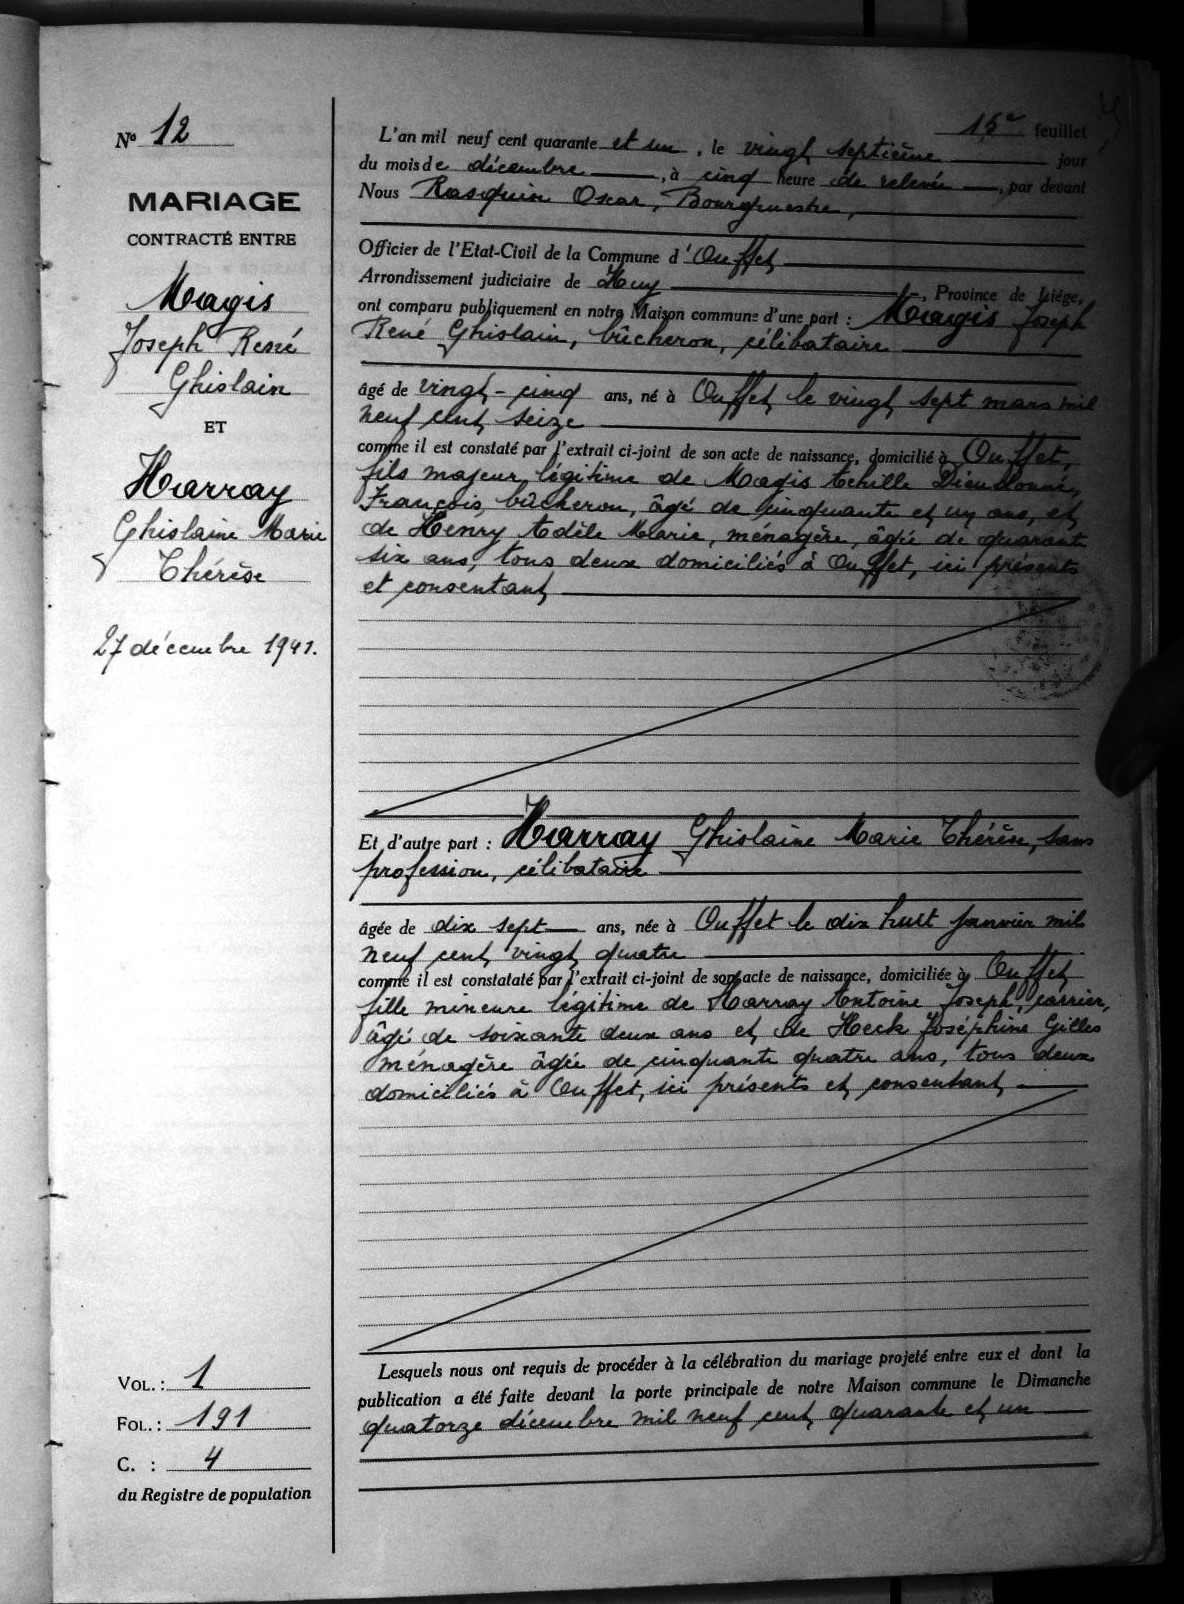 Nº 12
MARIAGE
CONTRACTÉ ENTRE
Magis
Joseph René
Ghislain
ET
Harray
Ghislaine Marie
Thérèse
27 décembre 1941.
VOL. : 1
FOL. : 191
C. : 4
du Registre de population
15e feuillet
L'an mil neuf cent quarante et un, le vingt septième jour
du mois de décembre, à cinq heure de relevée, par devant
Nous Rasquin Oscar, Bourgmestre,
Officier de l'Etat-Civil de la Commune d'Ouffet
Arrondissement judiciaire de Huy, Province de Liége,
ont comparu publiquement en notre Maison commune d'une part : Magis Joseph
René Ghislain, bûcheron, célibataire
âgé de vingt-cinq ans, né à Ouffet le vingt sept mars mil
neuf cent seize
comme il est constaté par l'extrait ci-joint de son acte de naissance, domicilié à Ouffet,
fils majeur légitime de Magis Achille Dieudonné,
François, bûcheron, âgé de cinquante et un ans, et
de Henry Adèle Marie, ménagère, âgée de quarante
six ans, tous deux domiciliés à Ouffet, ici présents
et consentant
Et d'autre part : Harray Ghislaine Marie Thérèse, sans
profession, célibataire
âgée de dix sept ans, née à Ouffet le dix huit janvier mil
neuf cent vingt quatre
comme il est constataté par l'extrait ci-joint de son acte de naissance, domiciliée à Ouffet
fille mineure légitime de Harray Antoine Joseph, carrier,
âgé de soixante deux ans et de Heck Joséphine Gilles
ménagère âgée de cinquante quatre ans, tous deux
domiciliés à Ouffet, ici présents et consentant
Lesquels nous ont requis de procéder à la célébration du mariage projeté entre eux et dont la
publication a été faite devant la porte principale de notre Maison commune le Dimanche
quatorze décembre mil neuf cent quarante et un